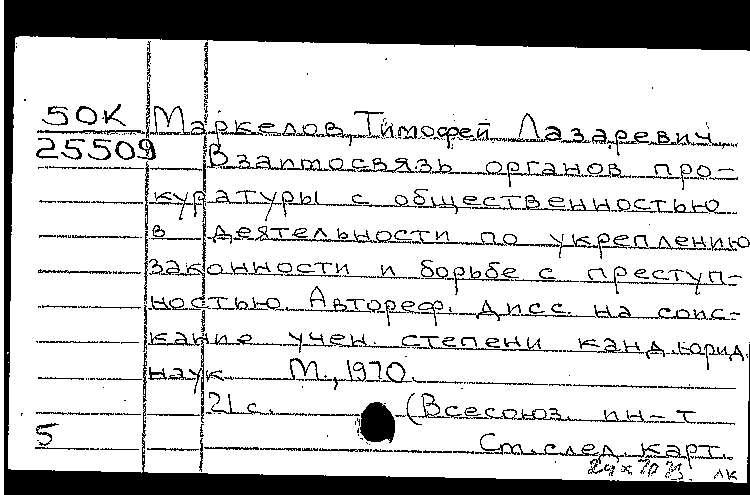 50К Маркелов, Тимофей Лазаревич.
25509 Взаимосвязь органов про-
куратуры с общественностью
в деятельности по укреплению
законности и борьбе с преступ-
ностью. Автореф. дисс. на соис-
кание учен. степени канд. юрид.
наук М., 1970.
21 с. (Всесоюз. ин-т
5 См. след. карт.
ЛК